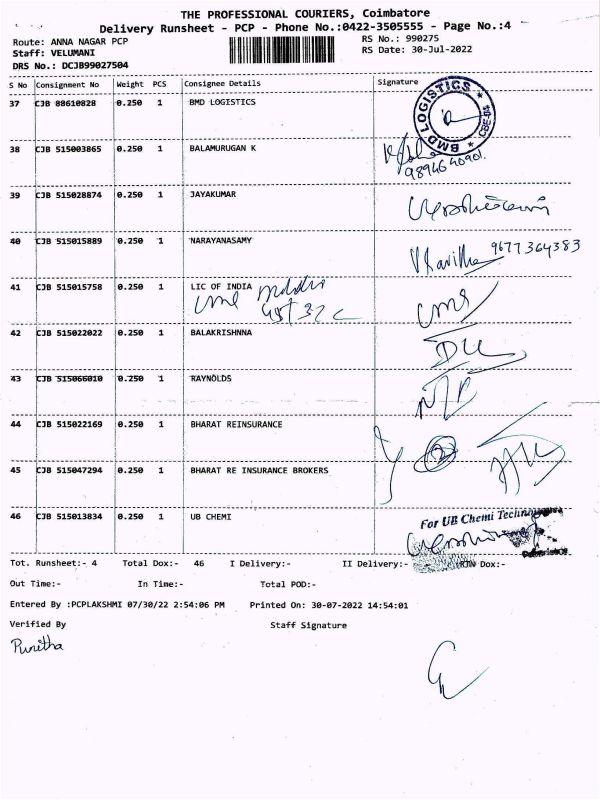 THE PROFESSIONAL COURIERS, Coimbatore
Delivery Runsheet - PCP - Phone No.:0422-3505555 - Page No.:4
Route: ANNA NAGAR PCP
RS No.: 990275
Staff: VELUMANI
RS Date: 30-Jul-2022
DRS No.: DCJB99027504
S No Consignment No Weight PCS Consignee Details Signature
37 CJB 08610828 0.250 1 BMD LOGISTICS
BMD LOGISTICS
38 CJB 515003865 0.250 1 BALAMURUGAN K
39 CJB 515028874 0.250 1 JAYAKUMAR
40 CJB 515015889 0.250 1 NARAYANASAMY
9677364383
41 CJB 515015758 0.250 1 LIC OF INDIA
42 CJB 515022022 0.250 1 BALAKRISHNNA
43 CJB 515066010 0.250 1 RAYNOLDS
44 CJB 515022169 0.250 1 BHARAT REINSURANCE
45 CJB 515047294 0.250 1 BHARAT RE INSURANCE BROKERS
46 CJB 515013834 0.250 1 UB CHEMI
For UB Chemi
Tot. Runsheet:- 4 Total Dox:- 46 I Delivery:- II Delivery:- RTN Dox:-
Out Time:- In Time:- Total POD:-
Entered By :PCPLAKSHMI 07/30/22 2:54:06 PM Printed On: 30-07-2022 14:54:01
Verified By Staff Signature
Punitha